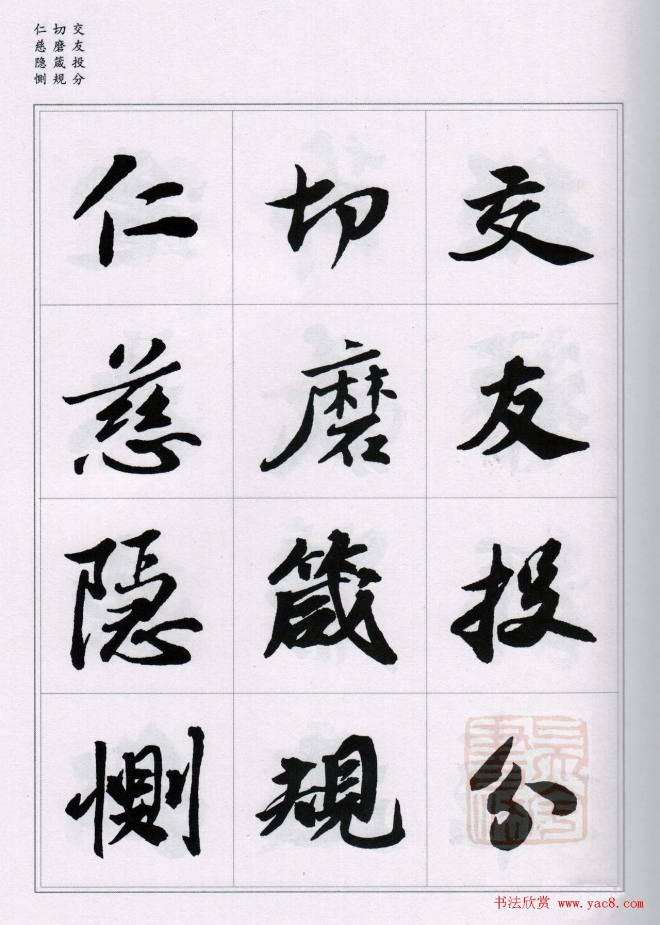 交友投分
切磨箴規
仁慈隐惻
交友投分
切磨箴規
仁慈隱惻
书法欣赏 www.yac8.com